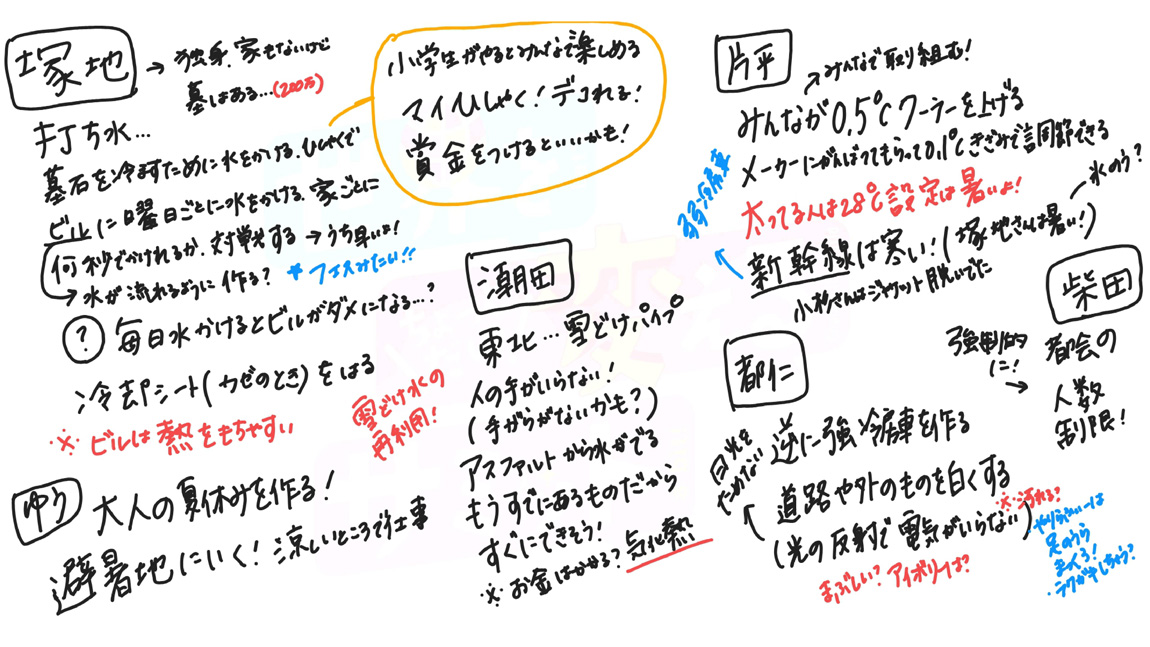 塚地
→ 独身、家もないけど
墓はある…(200万)
打ち水…
墓石を冷ますために水をかける、ひしゃくで
ビルに曜日ごとに水をかける、家ごとに
何秒でかけれるか、対戦する → うち早いよ!
→ 水が流れるように作る? *フェスみたい!!
? 毎日水かけるとビルがダメになる…?
冷却シート(カゼのとき)をはる
※ビルは熱をもちやすい
小学生がやるとみんなで楽しめる
マイひしゃく!デコれる!
賞金をつけるといいかも!
ゆう
大人の夏休みを作る!
避暑地にいく!涼しいところで仕事
潮田
東北…雪どけパイプ
人の手がいらない!
(手がらがないかも?)
アスファルトから水がでる
もうすでにあるものだから
すぐにできそう!
※お金はかかる? 気化熱
雪どけ水の
再利用!
片平
→みんなで取り組む!
みんなが0.5℃クーラーを上げる
メーカーにがんばってもらって0.1℃きざみで調節できる
太ってる人は28℃設定は暑いよ!
氷のう?
新幹線は寒い!(塚地さんは暑い!)
小杉さんはジャケット脱いでた
弱冷房車
都仁
逆に強冷房車を作る
道路や外のものを白くする
(光の反射で電気がいらない)
日光を
ためない
※汚れる?
まぶしい?アイボリーは?
足のうら
まっくろ!
柴田
強制的
に!
→
都会の
人数
制限!